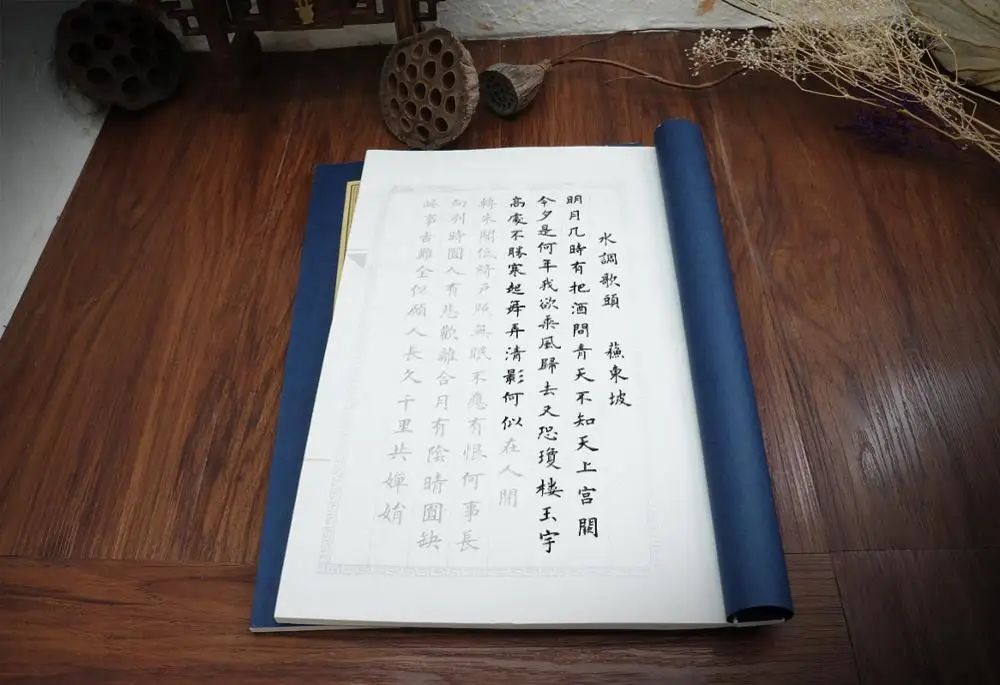 水調歌頭 蘇東坡
明月几時有把酒問青天不知天上宮闕
今夕是何年我欲乘風歸去又恐瓊楼玉宇
高處不勝寒起舞弄清影何似在人間
轉朱閣低綺戶照無眠不應有恨何事長
向別時圆人有悲歡離合月有陰晴圆缺
此事古難全但願人長久千里共嬋娟